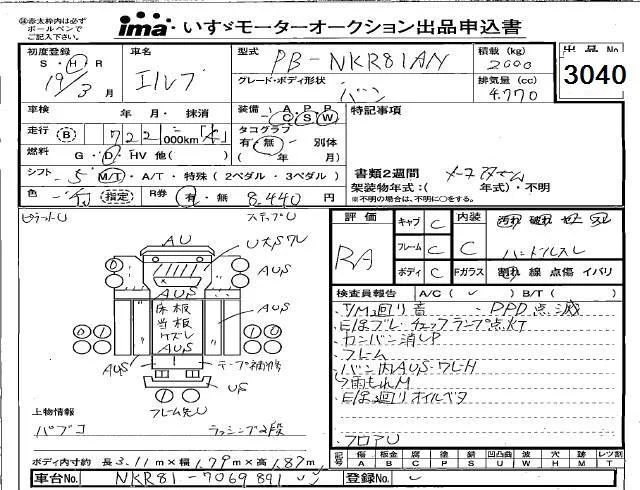 ※赤太枠内は必ず
ボールペンで
ご記入下さい。
ima いすゞモーターオークション出品申込書
初度登録 車名 型式 積載 (kg) 出品 No
S・H・R エルフ PB-NKR81AN 2000 3040
19/3 月 グレード・ボディ形状 バン 排気量 (cc) 4.770
車検 年 月・抹消 装備 A P P C S W 特記事項
走行 B 722 000km タコグラフ 有・無 別体
燃料 G・D・HV 他( ) ( 年 月) 書類2週間
シフト 5 M/T・A/T・特殊(2ペダル・3ペダル) 架装物年式:( 年式)・不明
色 指定 R券 有・無 8,440 円 ※不明の場合は、不明に〇をする。
評価 キャブ C 内装 汚れ 破れ
RA フレーム C C ハンドルスレ
ボディ C Fガラス 割れ 線 点傷 イバリ
検査員報告 A/C( ) B/T( )
T/M廻り音 PPD点滅
E/gブレ・チェックランプ点灯
カンバン消UP
フレーム
バン内AUS・ワレH
雨もれM
E/g廻りオイルベタ
フロアU
ピラートU ステップU
AU
AUS
AUS
AUS
床板
当板
ケズレ
AUS
AUS
テープ補修
US
フレーム先U
上物情報
パブコ ラッシング2段
ボディ内寸約 長3.11m×幅1.79m×高1.87m
記号 傷 板金 腐 塗 錆 凹凸曲 波 穴 跡 レツ割
A B C P S U W H M T
車台No. NKR81-7069891 登録No.